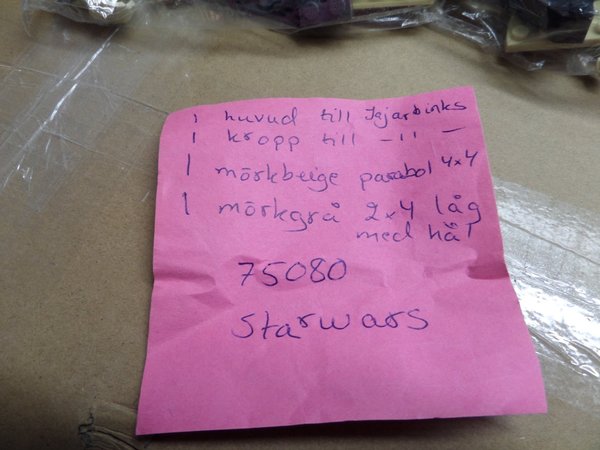 1 huvud till Jajarbinks
1 kropp till -"-
1 mörkbeige parabol 4x4
1 mörkgrå 2x4 låg
med hål
75080
starwars